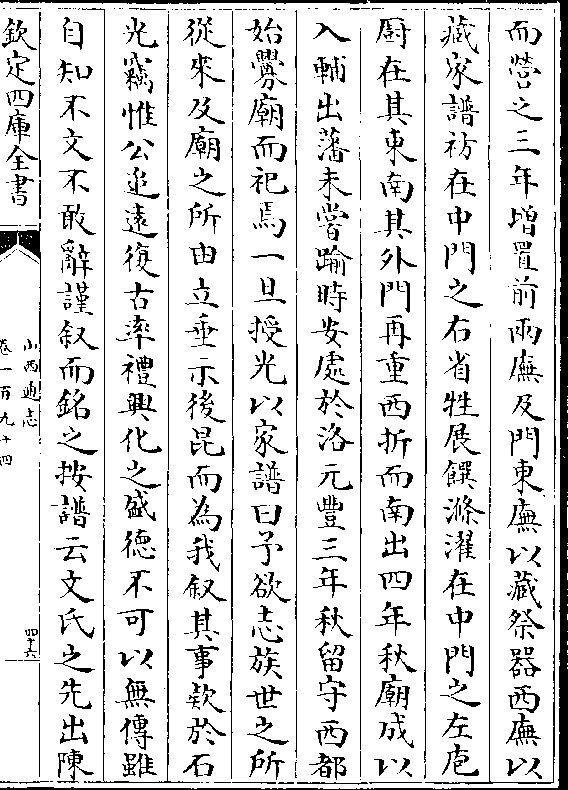 而營之三年增置前兩廡及門東廡以藏祭器西廡以
藏家譜祊在中門之右省牲展饌滌濯在中門之左庖
厨在其東南其外門再重西折而南出四年秋廟成以
入輔出藩未嘗踰時安處於洛元豐三年秋留守西都
始釁廟而祀焉一旦授光以家譜曰予欲志族世之所
從來及廟之所由立垂示後昆而為我叙其事欵於石
光竊惟公追遠復古率禮興化之盛德不可以無傳雖
自知不文不敢辭謹叙而銘之按譜云文氏之先出陳
欽定四庫全書
山西通志
卷一百九十四
四十六